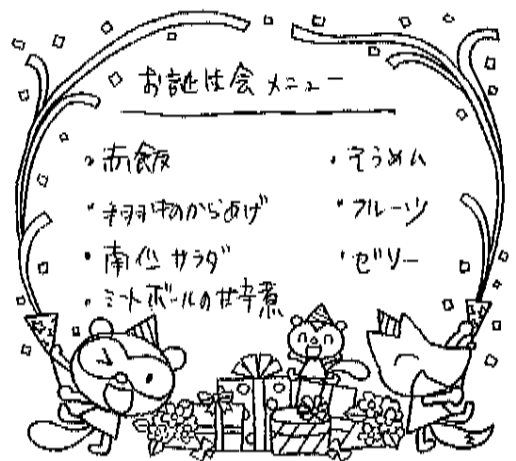 お誕生会 メニュー
・赤飯
・手羽 からあげ
・南瓜サラダ
・ミートボールの甘辛煮
・そうめん
・フルーツ
・ゼリー